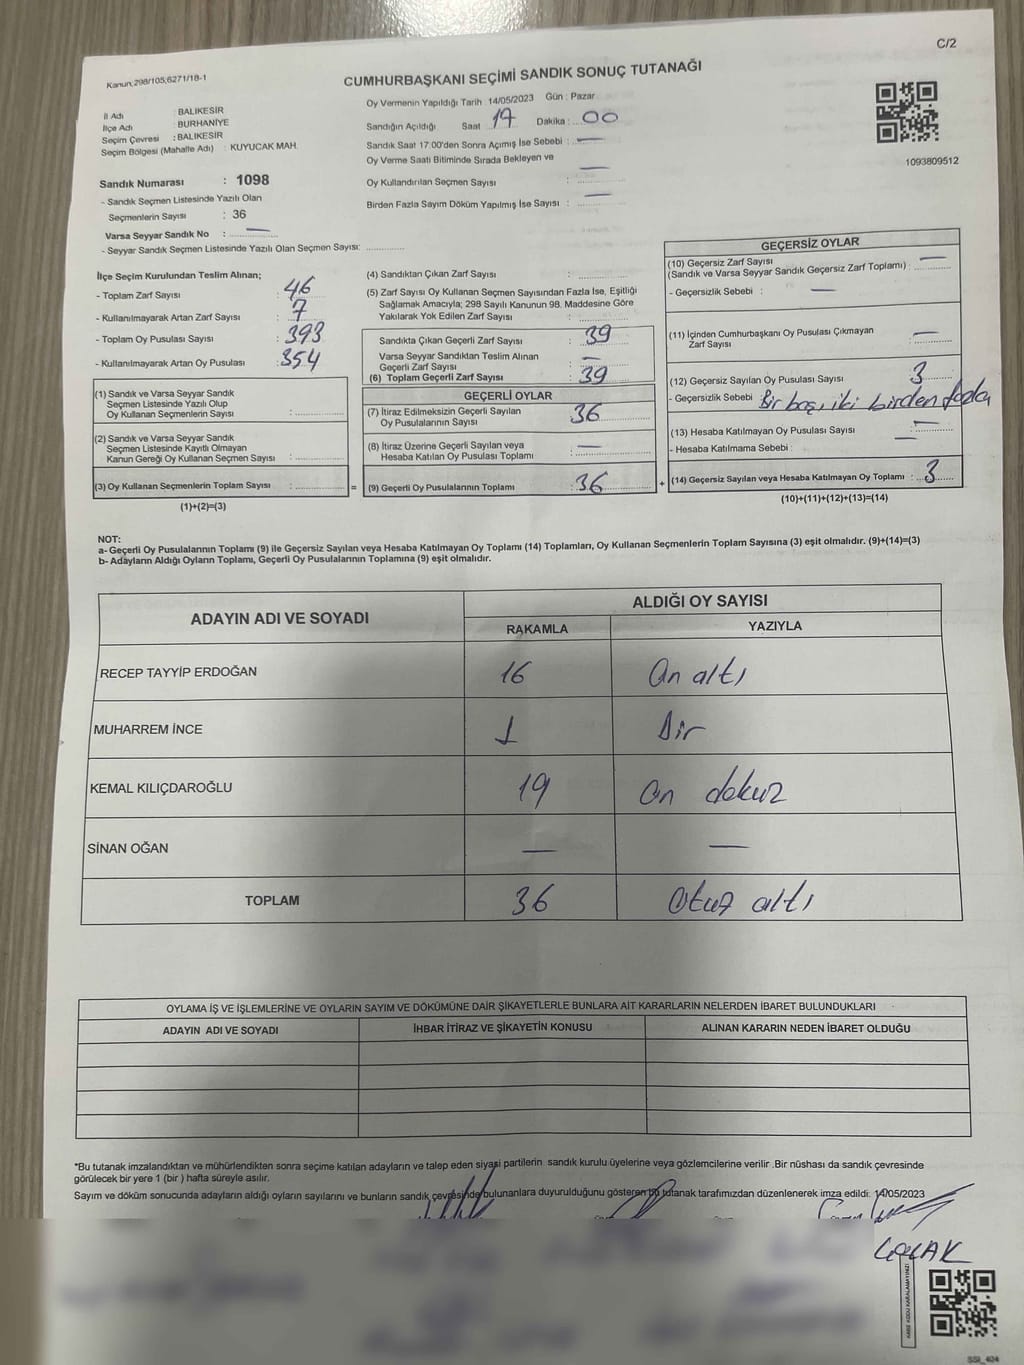 C/2
Kanun;298/105;6271/18-1
CUMHURBAŞKANI SEÇİMİ SANDIK SONUÇ TUTANAĞI
İl Adı : BALIKESİR
İlçe Adı : BURHANİYE
Seçim Çevresi : BALIKESİR
Seçim Bölgesi (Mahalle Adı) : KUYUCAK MAH.
Oy Vermenin Yapıldığı Tarih :14/05/2023 Gün : Pazar
Sandığın Açıldığı Saat 17 Dakika : 00
Sandık Saat 17:00'den Sonra Açımış İse Sebebi : —
Oy Verme Saati Bitiminde Sırada Bekleyen ve
Oy Kullandırılan Seçmen Sayısı : —
Birden Fazla Sayım Döküm Yapılmış İse Sayısı : —
1093809512
Sandık Numarası : 1098
- Sandık Seçmen Listesinde Yazılı Olan
Seçmenlerin Sayısı : 36
Varsa Seyyar Sandık No : —
- Seyyar Sandık Seçmen Listesinde Yazılı Olan Seçmen Sayısı: ............
İlçe Seçim Kurulundan Teslim Alınan;
- Toplam Zarf Sayısı : 46
- Kullanılmayarak Artan Zarf Sayısı : 7
- Toplam Oy Pusulası Sayısı : 393
- Kullanılmayarak Artan Oy Pusulası : 354
(1) Sandık ve Varsa Seyyar Sandık
Seçmen Listesinde Yazılı Olup
Oy Kullanan Seçmenlerin Sayısı : ............
(2) Sandık ve Varsa Seyyar Sandık
Seçmen Listesinde Kayıtlı Olmayan
Kanun Gereği Oy Kullanan Seçmen Sayısı : ............
(3) Oy Kullanan Seçmenlerin Toplam Sayısı : ............ =
(1)+(2)=(3)
(4) Sandıktan Çıkan Zarf Sayısı : ............
(5) Zarf Sayısı Oy Kullanan Seçmen Sayısından Fazla İse, Eşitliği
Sağlamak Amacıyla; 298 Sayılı Kanunun 98. Maddesine Göre
Yakılarak Yok Edilen Zarf Sayısı : ............
Sandıkta Çıkan Geçerli Zarf Sayısı : 39
Varsa Seyyar Sandıktan Teslim Alınan
Geçerli Zarf Sayısı : —
(6) Toplam Geçerli Zarf Sayısı : 39
GEÇERLİ OYLAR
(7) İtiraz Edilmeksizin Geçerli Sayılan
Oy Pusulalarının Sayısı : 36
(8) İtiraz Üzerine Geçerli Sayılan veya
Hesaba Katılan Oy Pusulası Toplamı : —
(9) Geçerli Oy Pusulalarının Toplamı : 36 +
GEÇERSİZ OYLAR
(10) Geçersiz Zarf Sayısı
(Sandık ve Varsa Seyyar Sandık Geçersiz Zarf Toplamı) : —
- Geçersizlik Sebebi : —
(11) İçinden Cumhurbaşkanı Oy Pusulası Çıkmayan
Zarf Sayısı : —
(12) Geçersiz Sayılan Oy Pusulası Sayısı : 3
- Geçersizlik Sebebi Bir boş, iki birden fazla
(13) Hesaba Katılmayan Oy Pusulası Sayısı : —
- Hesaba Katılmama Sebebi : —
(14) Geçersiz Sayılan veya Hesaba Katılmayan Oy Toplamı : 3
(10)+(11)+(12)+(13)=(14)
NOT:
a- Geçerli Oy Pusulalarının Toplamı (9) ile Geçersiz Sayılan veya Hesaba Katılmayan Oy Toplamı (14) Toplamları, Oy Kullanan Seçmenlerin Toplam Sayısına (3) eşit olmalıdır. (9)+(14)=(3)
b- Adayların Aldığı Oyların Toplamı, Geçerli Oy Pusulalarının Toplamına (9) eşit olmalıdır.
ADAYIN ADI VE SOYADI
ALDIĞI OY SAYISI
RAKAMLA YAZIYLA
RECEP TAYYİP ERDOĞAN 16 On altı
MUHARREM İNCE 1 Bir
KEMAL KILIÇDAROĞLU 19 On dokuz
SİNAN OĞAN — —
TOPLAM 36 Otuz altı
OYLAMA İŞ VE İŞLEMLERİNE VE OYLARIN SAYIM VE DÖKÜMÜNE DAİR ŞİKAYETLERLE BUNLARA AİT KARARLARIN NELERDEN İBARET BULUNDUKLARI
ADAYIN ADI VE SOYADI İHBAR İTİRAZ VE ŞİKAYETİN KONUSU ALINAN KARARIN NEDEN İBARET OLDUĞU
*Bu tutanak imzalandıktan ve mühürlendikten sonra seçime katılan adayların ve talep eden siyasi partilerin sandık kurulu üyelerine veya gözlemcilerine verilir .Bir nüshası da sandık çevresinde
görülecek bir yere 1 (bir ) hafta süreyle asılır.
Sayım ve döküm sonucunda adayların aldığı oyların sayılarını ve bunların sandık çevresinde bulunanlara duyurulduğunu gösteren bu tutanak tarafımızdan düzenlenerek imza edildi. 14/05/2023
KARE KODU KARALAMAYINIZ!
SSI_404